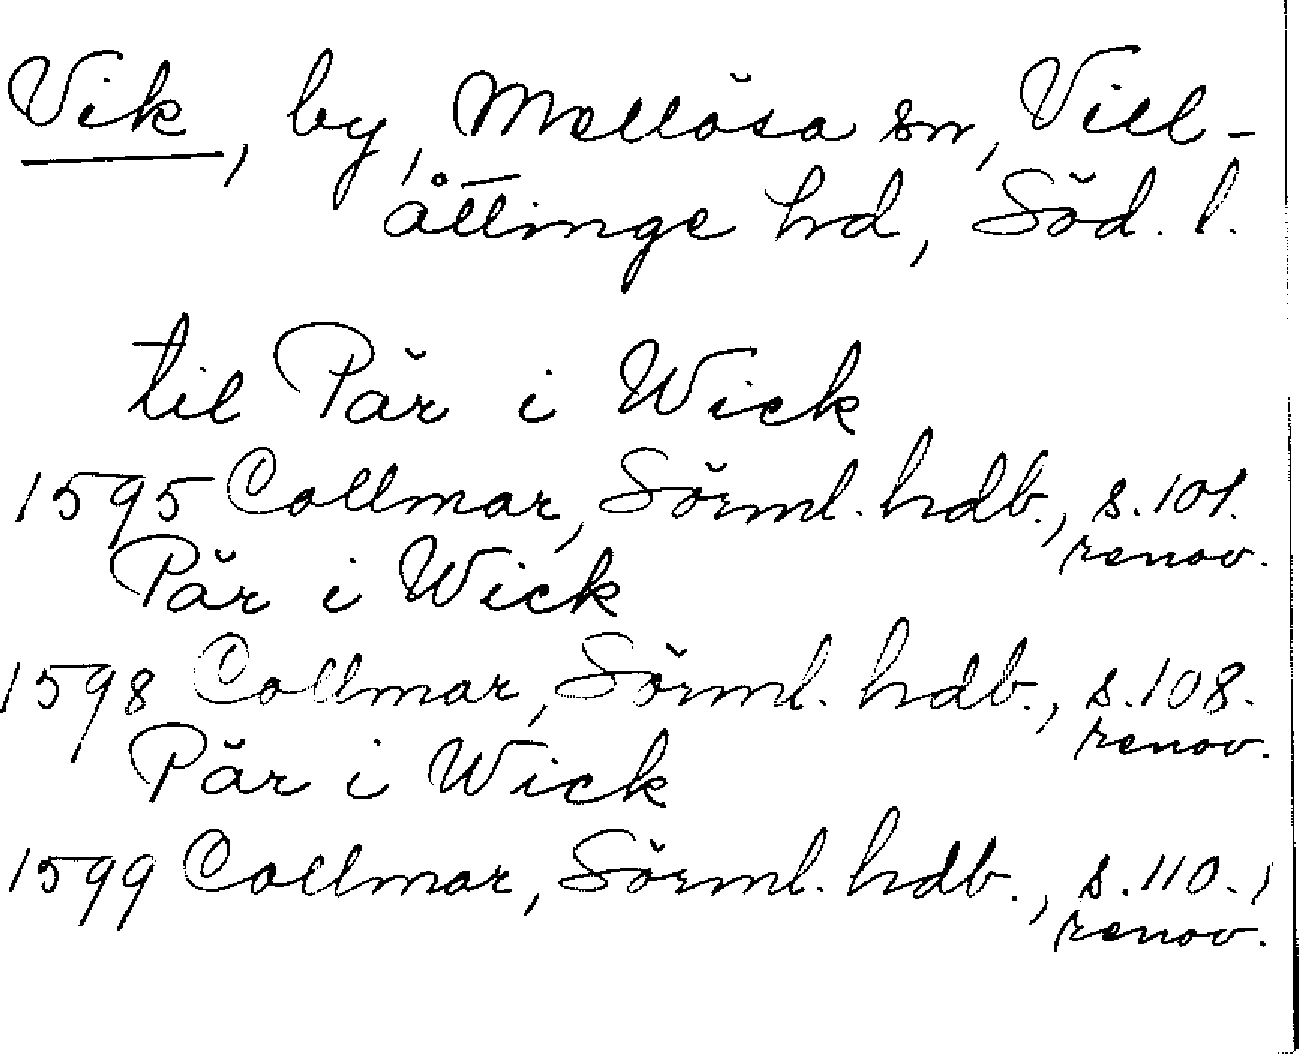 Vik, by, Mellösa sn, Vill-
åttinge hd, Söd. l.
til Pär i Wick
1595 Collmar, Sörml. hdb., s. 101.
renov.
Pär i Wick
1598 Collmar, Sörml. hdb., s. 108.
renov.
Pär i Wick
1599 Collmar, Sörml. hdb., s. 110.,
renov.